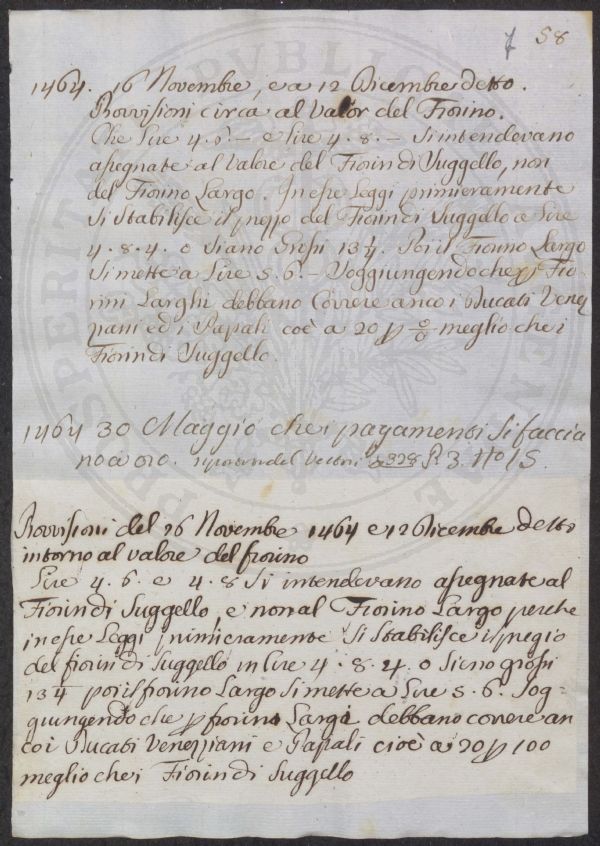 7 58
1464. 16 Novembre, e a 12 Dicembre detto.
Provvisioni circa al Valor del Fiorino.
Che Lire 4. 6. – e lire 4. 8. – s'intendevano
asegnate al Valore del Fiorin di Suggello, non
del Fiorino Largo. In esse Leggi primieramente
si Stabilisce il prezzo del Fiorin di Suggello a Lire
4. 8. 4. o siano Grossi 13 1/4. Poi il Fiorino Largo
si mette a Lire 5. 6. – Soggiungendo che p Fio-
rini Larghi debbano Correre anco i Ducati Vene
ziani ed i Papali coè a 20 p 0/0 meglio che i
Fiorin di Suggello.
1464 30 Maggio che i pagamenti si faccia
no a oro. del 328 P. 3. No 15.
Provvisioni del 26 Novembre 1464 e 12 Dicembre detto
intorno al valore del fiorino
Lire 4. 6. e 4. 8 s'intendevano asegnate al
Fiorin di Suggello, e non al Fiorino Largo perche
in esse Leggi primieramente si Stabilisce il pregio
del fiorin di Suggello in Lire 4. 8. 4. o sieno grossi
13 1/4 poi il fiorino Largo si mette a Lire 5. 6. Sog-
giungendo che p fiorini Largi debbano correre an
co i Ducati Veneziani e Papali cioè a 20 p 100
meglio che i Fiorin di Suggello
PROSPERITA PVBLICAE